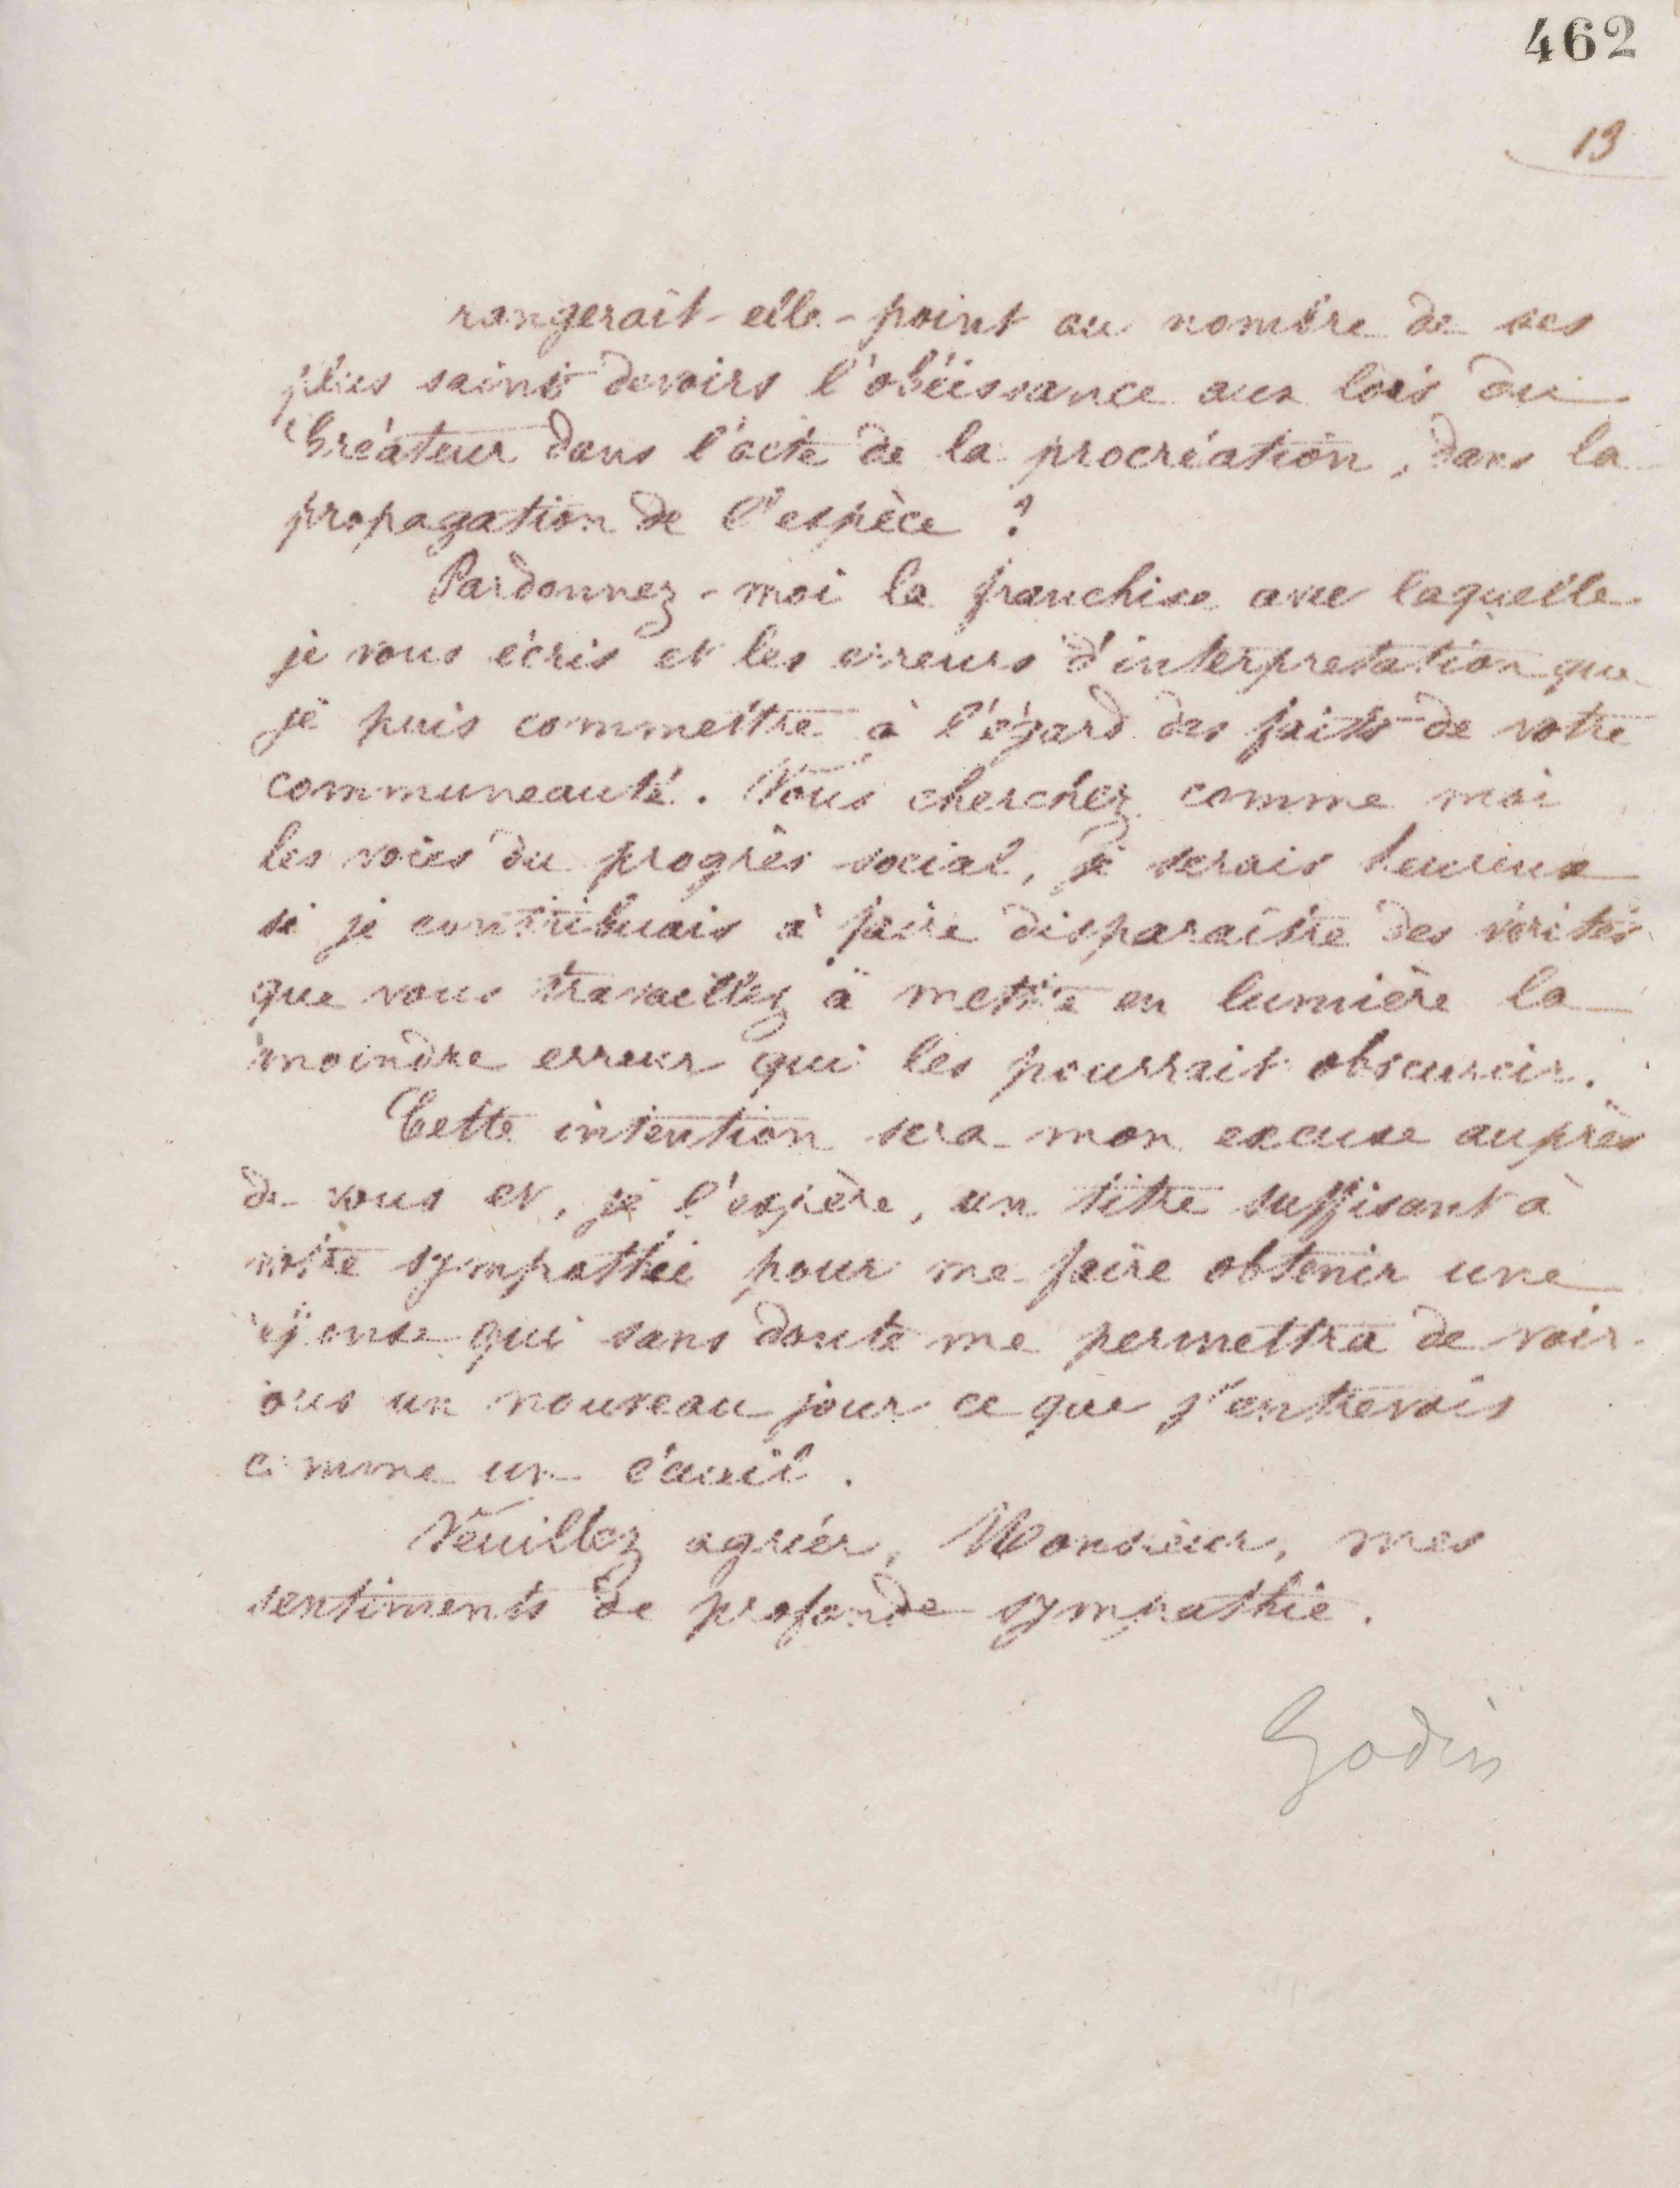 462
13
rangerait-elle-point au nombre de ses
plus saints devoirs l'obéissance aux lois du
Créateur dans l'acte de la procréation, dans la
propagation de l'espèce ?
Pardonnez-moi la franchise avec laquelle
je vous écris et les erreurs d'interpretation que
je puis commettre à l'égard des faits de votre
communeauté. Vous cherchez comme moi
les voies du progrès social, je serais heureux
si je contribuais à faire disparaître des vérités
que vous travaillez à mettre en lumière la
moindre erreur qui les pourrait obscurcir.
Cette intention sera mon excuse auprès
de vous et, je l'espère, un titre suffisant à
votre sympathie pour me faire obtenir une
réponse qui sans doute me permettra de voir
sous un nouveau jour ce que j'entrevois
comme un écueil.
Veuillez agréer, Monsieur, mes
sentiments de profonde sympathie.
Godin